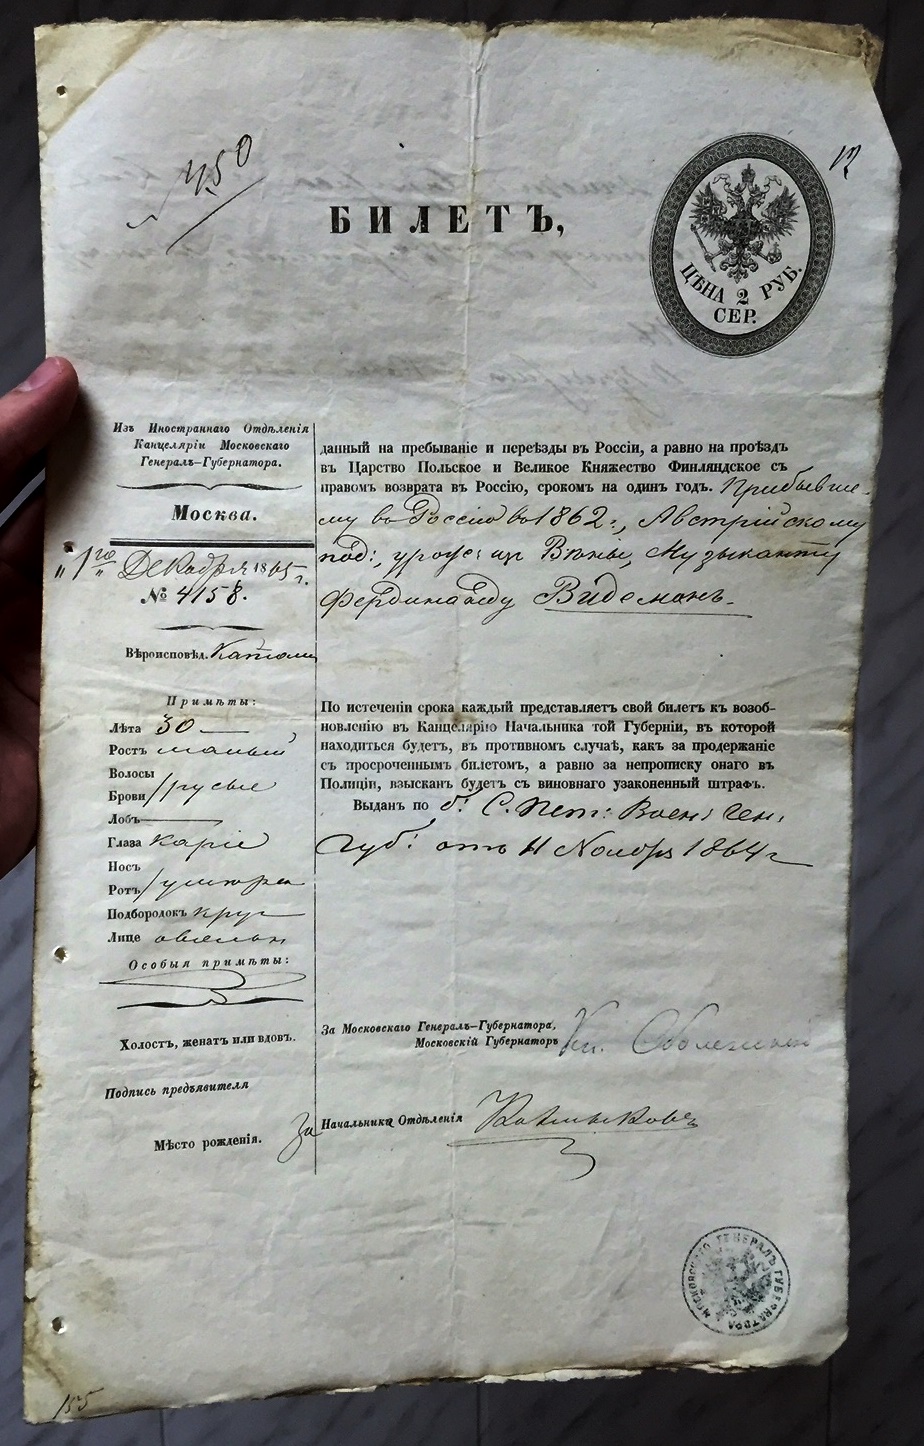 450
12
БИЛЕТЪ,
ЦѢНА 2 РУБ.
СЕР.
Изъ Иностраннаго Отдѣленія
Канцеляріи Московскаго
Генералъ-Губернатора.
Москва.
"1го" Декабря 1865 г.
№ 4158.
Вѣроисповѣд. Катол
Примѣты:
Лѣта 30
Ростъ малый
Волосы
Брови русые
Лобъ
Глаза каріе
Носъ
Ротъ умѣрен
Подбородокъ круг
Лице овальн
Особыя примѣты:
Холостъ, женатъ или вдовъ.
Подпись предъявителя
Мѣсто рожденія.
данный на пребываніе и переѣзды въ Россіи, а равно на проѣздъ
въ Царство Польское и Великое Княжество Финляндское съ
правомъ возврата въ Россію, срокомъ на одинъ годъ. Прибывше-
му въ Россію въ 1862 г., Австрійскому
под: урож: из Вѣны, Музыканту
Фердинанду Видеманъ.
По истеченіи срока каждый представляетъ свой билетъ къ возоб-
новленію въ Канцелярію Начальника той Губерніи, въ которой
находиться будетъ, въ противномъ случаѣ, какъ за продержаніе
съ просроченнымъ билетомъ, а равно за непрописку онаго въ
Полиціи, взысканъ будетъ съ виновнаго узаконенный штрафъ.
Выданъ по б: С. Пет: Воен: Ген:
Губ: отъ 11 Ноября 1864 г
За Московскаго Генералъ-Губернатора,
Московскій Губернаторъ Кн. Оболенскій
За Начальника Отдѣленія
МОСКОВСКАГО ГЕНЕРАЛЪ ГУБЕРНАТОРА
155